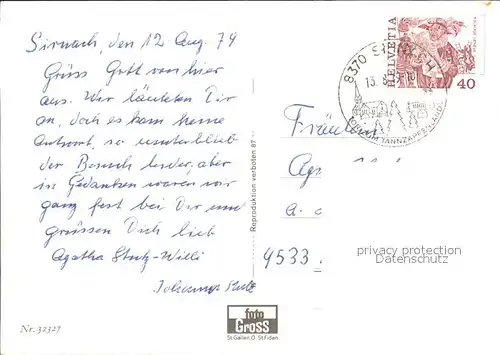 Sirnach, den 12 Aug. 79
Grüss Gott von hier
aus. Wir läuteten Dir
an, doch es kam keine
Antwort, so unterblieb
der Besuch leider, aber
in Gedanken waren wir
ganz fest bei Dir und
grüssen Dich lieb
Agatha Stutz-Willi
Johannes Stutz
Nr. 32327
Reproduktion verboten 87
foto
GROSS
St. Gallen O St. Fiden
8370 SIRNACH
13. 8. 79
TOR ZUM TANNZAPFENLAND
HELVETIA
40
Fräulein
Ag
a. d
9533
privacy protection
Datenschutz